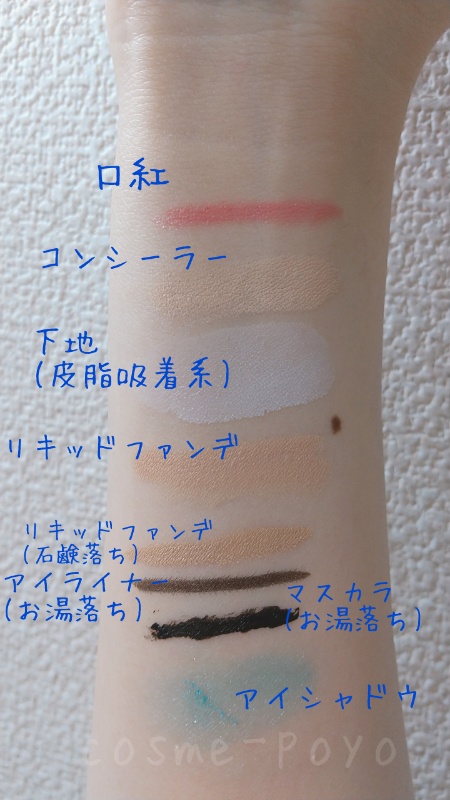 口紅
コンシーラー
下地
(皮脂吸着系)
リキッドファンデ
リキッドファンデ
(石鹸落ち)
アイライナー
(お湯落ち)
マスカラ
(お湯落ち)
アイシャドウ
cosme-Poyo